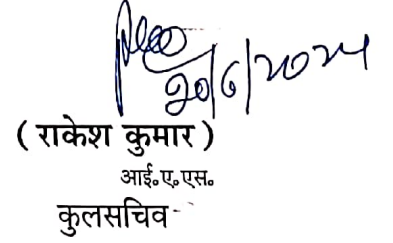 20/6/2024
( राकेश कुमार )
आई॰ए॰एस॰
कुलसचिव